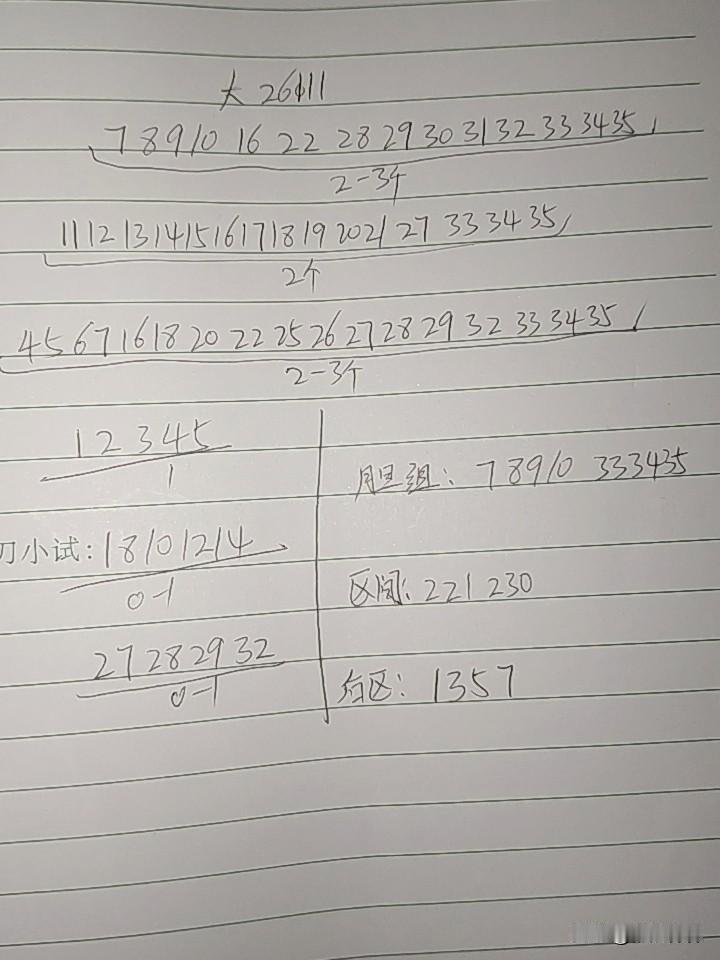 大 26111
7 8 9 10 16 22 28 29 30 31 32 33 34 35,
2-3个
11 12 13 14 15 16 17 18 19 20 21 27 33 34 35,
2个
4 5 6 7 16 18 20 22 25 26 27 28 29 32 33 34 35,
2-3个
1 2 3 4 5
1
胆组: 7 8 9 10 33 34 35
刀小试: 1 8 10 12 14
0-1
区间: 221 230
27 28 29 32
0-1
后区: 1 3 5 7